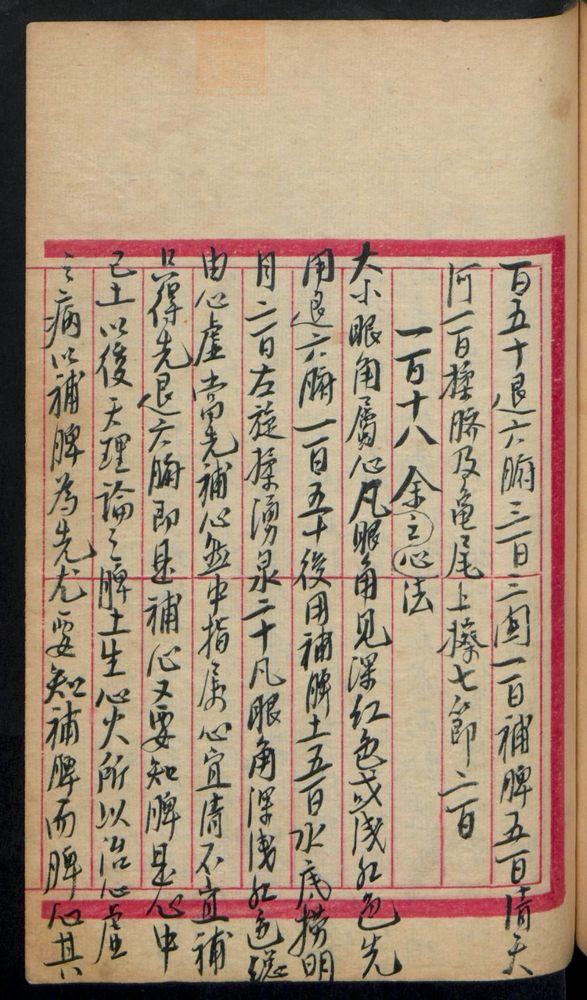 百五十退六腑三百三関一百補脾五百清天
河一百揉臍及龜尾上擦七節二百
一百十八 余之心法
大小眼角屬心凡眼角見深紅色或淺紅色先
用退六腑一百五十後用補脾土五百水底撈明
月二百左旋揉湧泉二十凡眼角深淺紅色總
由心虛當先補心然中指屬心宜清不宜補
只得先退六腑即是補心又要知脾是心中
己土以後天理論之脾土生心火所以治心虛
之病以補脾為先尤要知補脾而脾心其